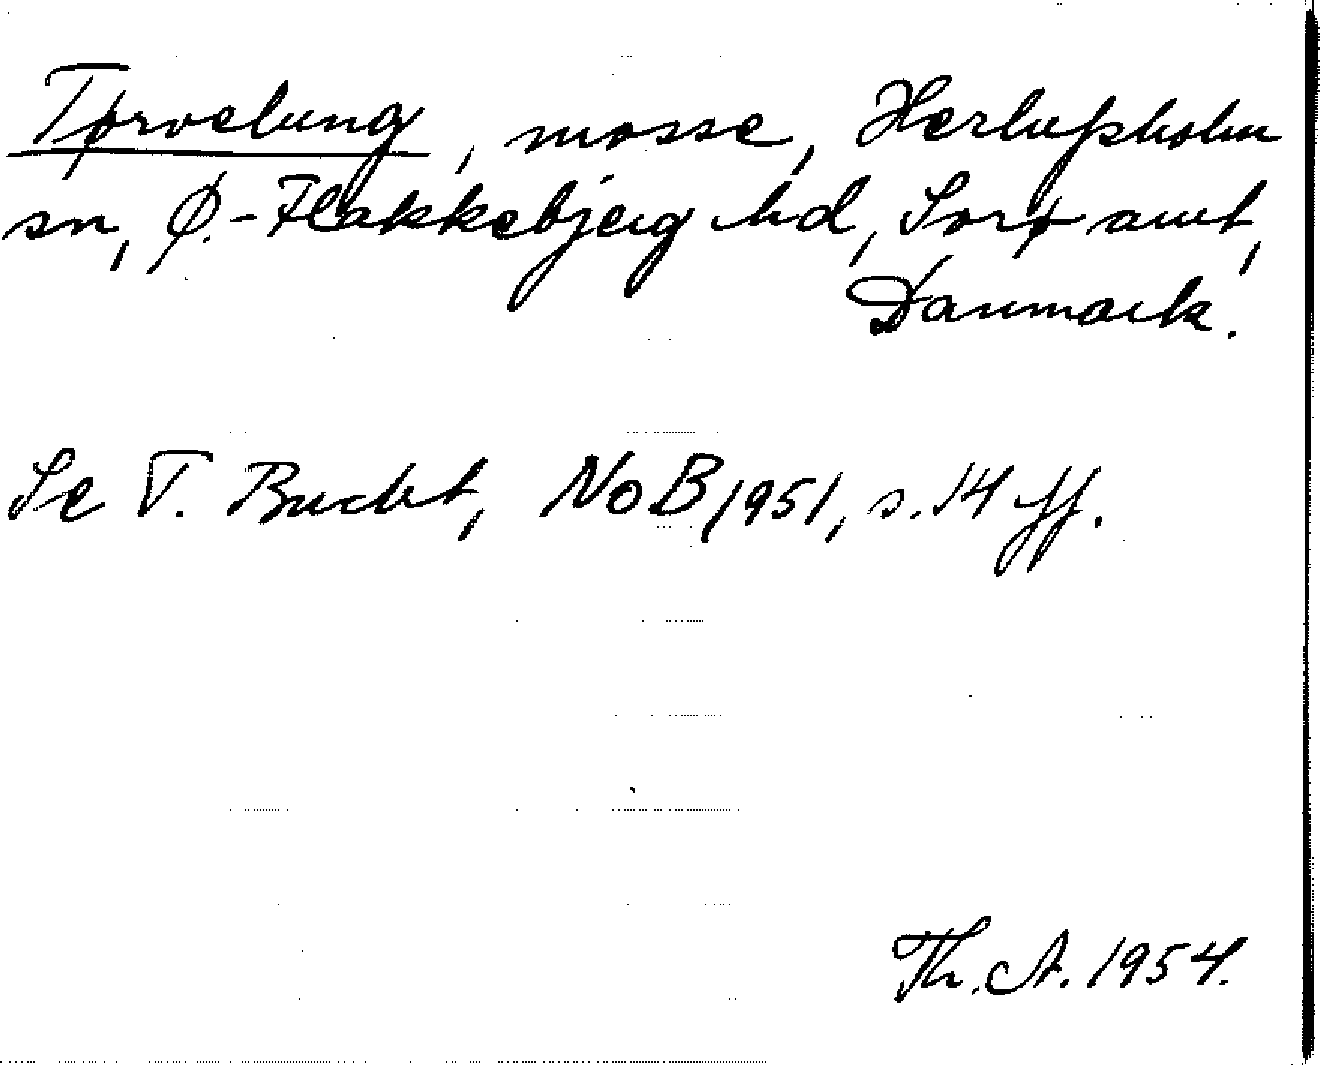 Tørvelung, mosse, Herlufsholm
sn, Ø.-Flakkebjerg hd, Sorø amt,
Danmark.
Se T. Bucht, NoB 1951, s. 14 ff.
Th. A. 1954.